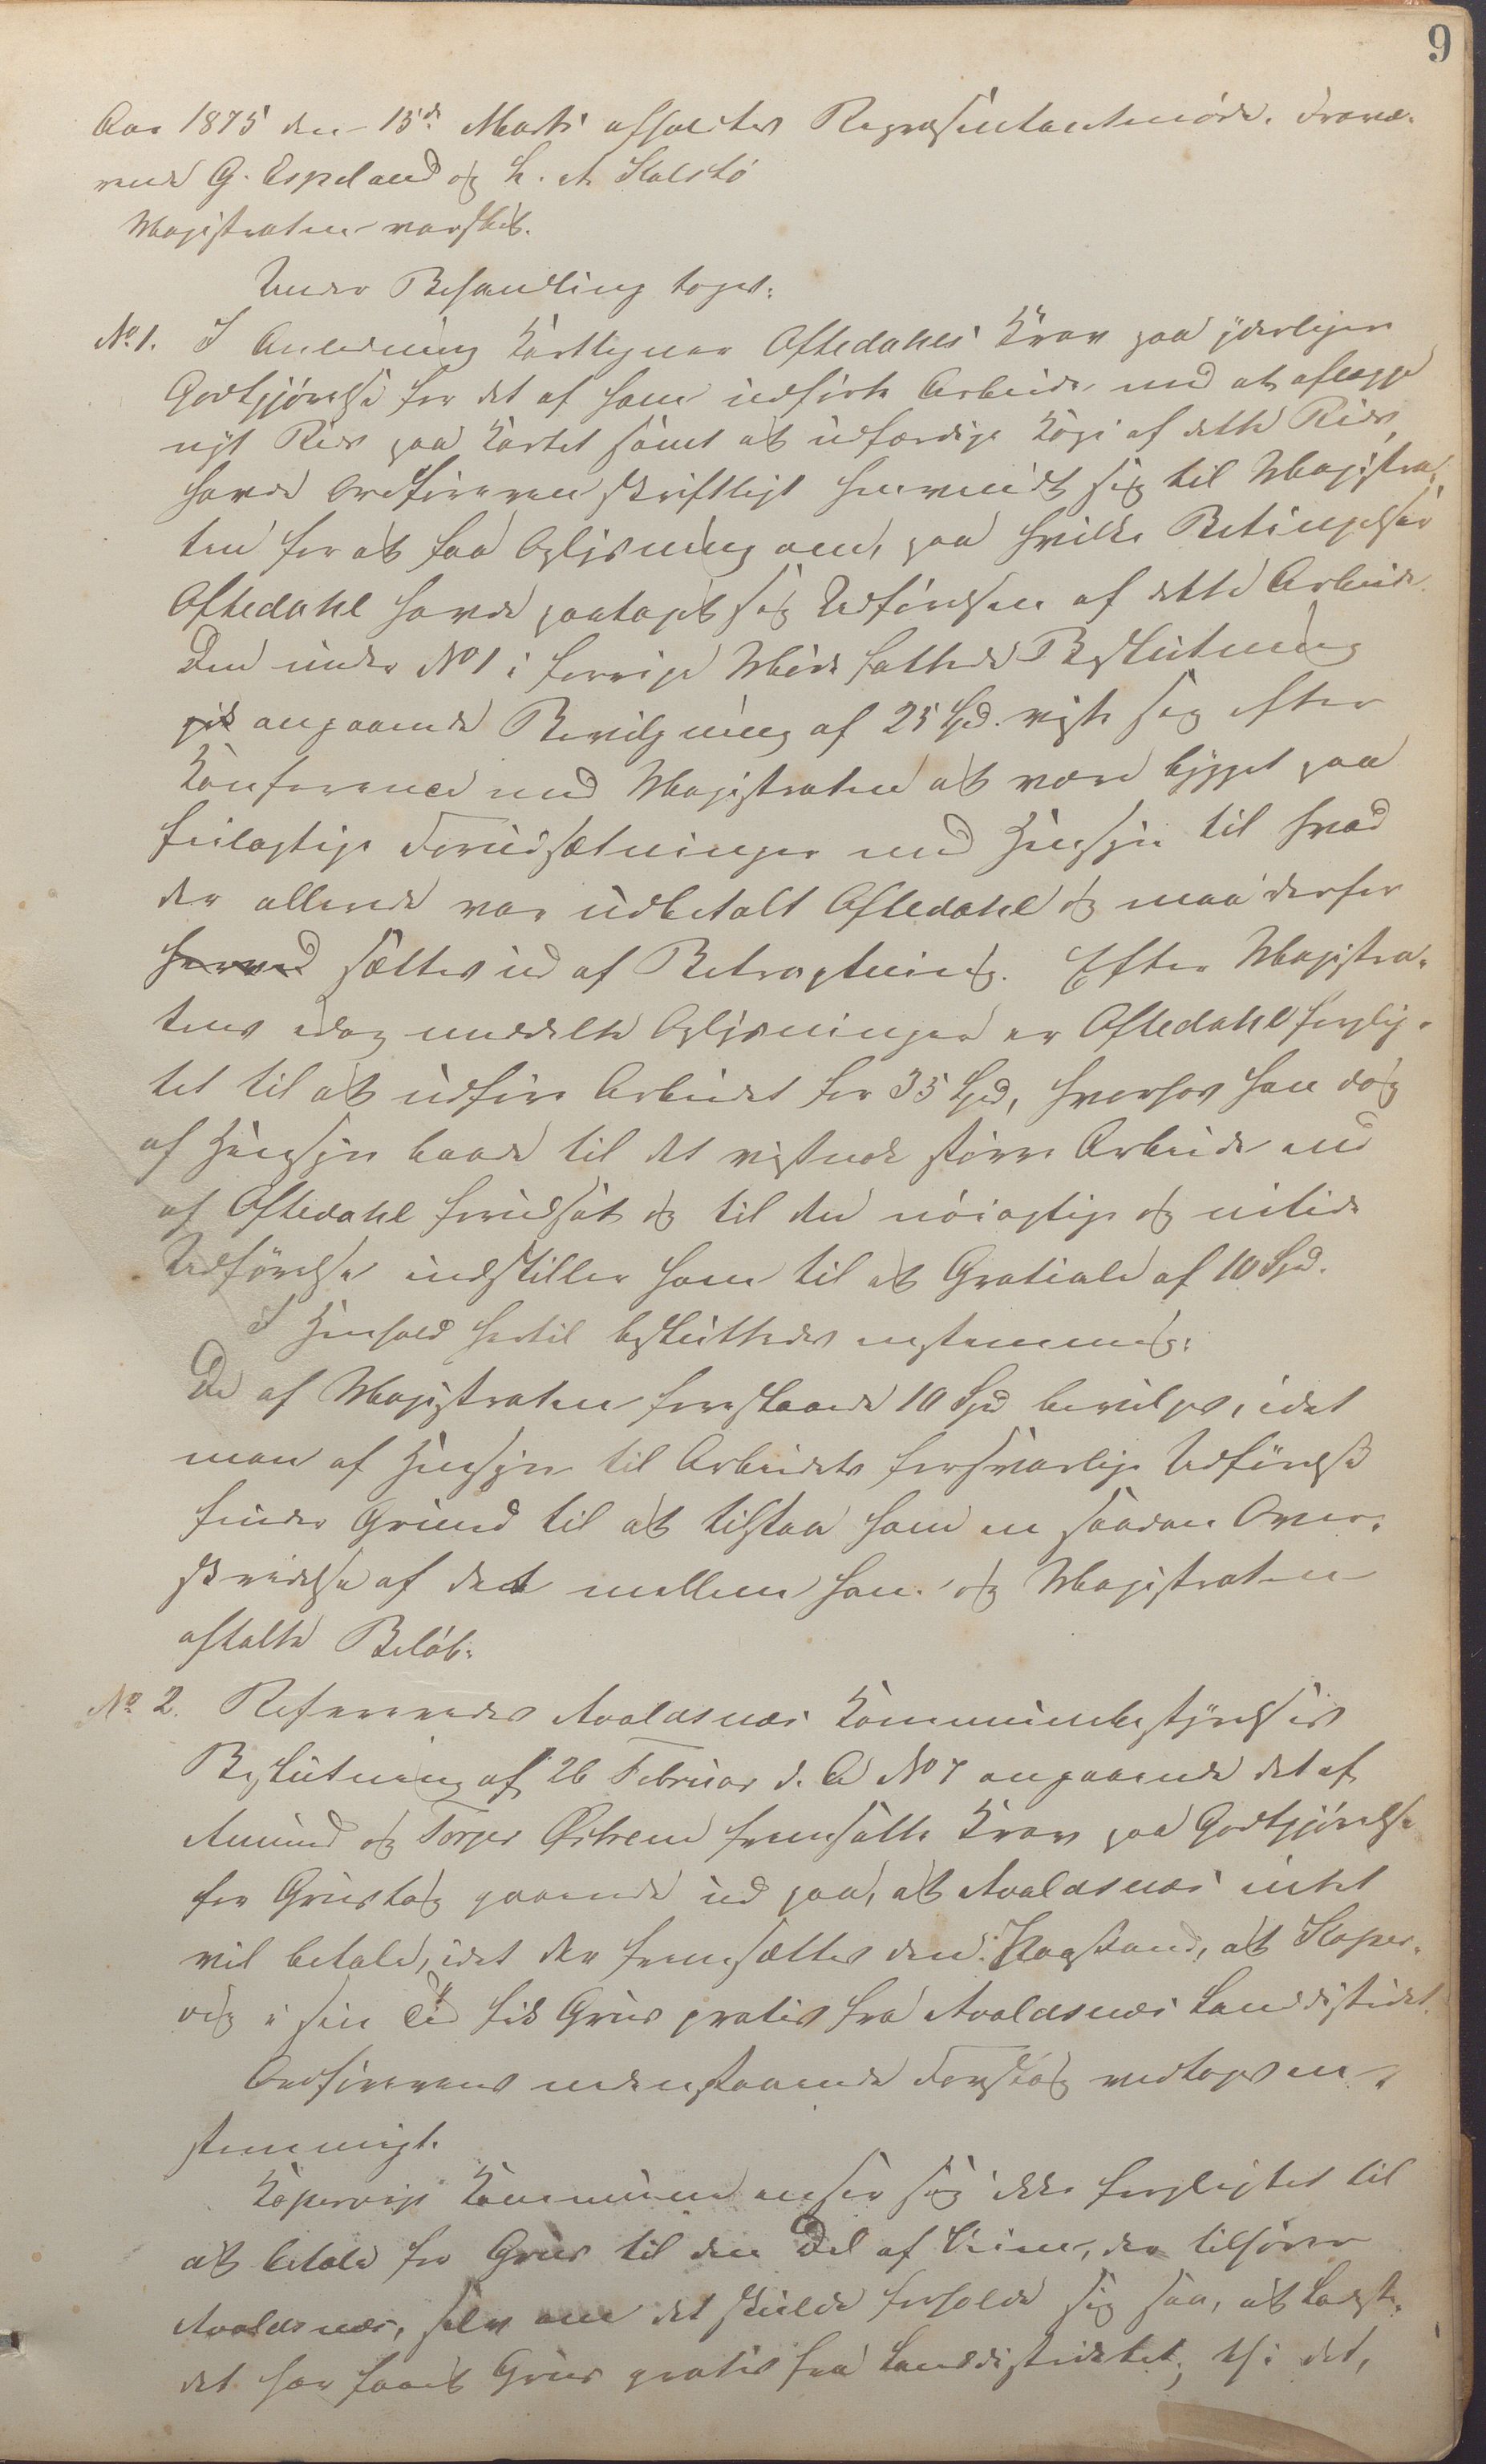 9
Aar 1875 den 15de Marts afholdtes Repræsentantmøde. Fravæ-
rende G. Espeland og H. A. Stolstø
Magistraten varslet.
Under Behandling toges:
No 1. I Anledning Karttegner Aftedahls Krav paa yderligere
Godtgjørelse for det af ham udførte Arbeide med at aflægge
nyt Rids paa Kartet samt at udfærdige Kopi af dette Rids,
havde Ordføreren skriftligt henvendt sig til Magistra-
ten for at faa Oplysning om, paa hvilke Betingelser
Aftedahl havde paataget sig Udførelsen af dette Arbeide.
Den under No 1 i forrige Møde fattede Beslutning
gik angaaende Bevilgning af 25 Spd. viste sig efter
Konference med Magistraten at være bygget paa
feilagtige Forudsætninger med Hensyn til hvad
der allerede var udbetalt Aftedahl og maa derfor
herved sættes ud af Betragtning. Efter Magistra-
tens idag meddelte Oplysninger er Aftedahl forplig-
tet til at udføre Arbeidet for 35 Spd, hvorhos han dog
af Hensyn baade til det vistnok større Arbeide end
af Aftedahl forudsat og til den nøiagtige og nitide
Udførelse indstiller ham til et Gratiale af 10 Spd.
I Henhold hertil besluttedes enstemmig:
De af Magistraten foreslaaede 10 Spd bevilges, idet
man af Hensyn til Arbeidets forsvarlige Udførelse
finder Grund til at tilstaa ham en saadan Over-
skridelse af det mellem ham og Magistraten
aftalte Beløb.
No 2. Refereredes Avaldsnæs Kommunebestyrelses
Beslutning af 26 Februar d. A No 7 angaaende det af
Amund og Torger Østrem fremsatte Krav paa Godtgjørelse
for Grustag gaaende ud paa, at Avaldsnæs intet
vil betale, idet der fremsættes den Paastand, at Koper-
vig i sin Tid fik Grus gratis fra Avaldsnæs Landdistrikt.
Ordførerens nedenstaaende Forslag vedtoges en-
stemmigt.
Kopervigs Kommune anser sig ikke forpligtet til
at betale for Grus til den Del af Veien, der tilhører
Avaldsnæs, selv om det skulde forholde sig saa, at Ladste-
det har faaet Grus gratis fra Landdistriktet; thi det,